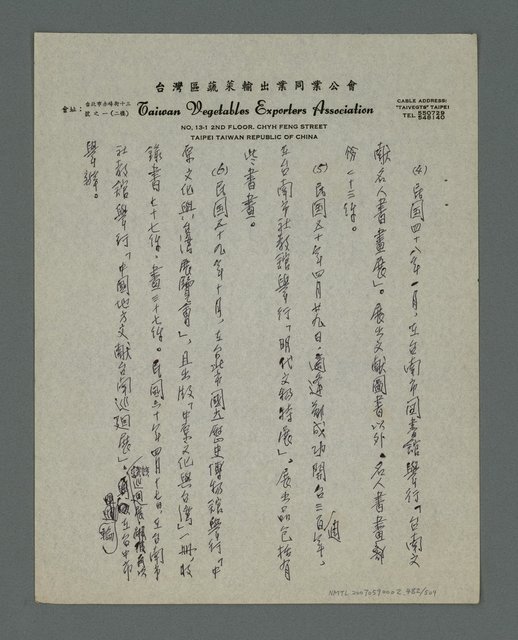 台灣區蔬菜輸出業同業公會
會址：台北市赤峰街十三號之一(二樓)
Taiwan Vegetables Exporters Association
CABLE ADDRESS:
"TAIVEGTS" TAIPEI
TEL
NO. 13-1 2ND FLOOR. CHYH FENG STREET
TAIPEI TAIWAN REPUBLIC OF CHINA
(4) 民国四十八年一月，在台南市図書館舉行「台南文
献名人書畫展」。展出文献圖書以外，名人書畫部
份二十三件。
(5) 民国五十年四月廿九日，適逢鄭成功開台三百年，
在台南市社教館舉行「明代文物特展」。展出品包括有
些書畫。
(6) 民国五十九年十月，在台北市國立歷史博物館舉行「中
原文化與台灣展覽會」，且出版「中原文化與台灣」一冊，收
錄書七十七件，畫三十七件。民国六十年四月十七日，在台南市
社教館舉行「中國地方文献台南巡廻展」。在台中市
舉辦。
NMTL20070590002_482/504